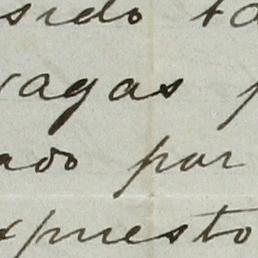 sido ta
vagas p
ado por
xpuesto